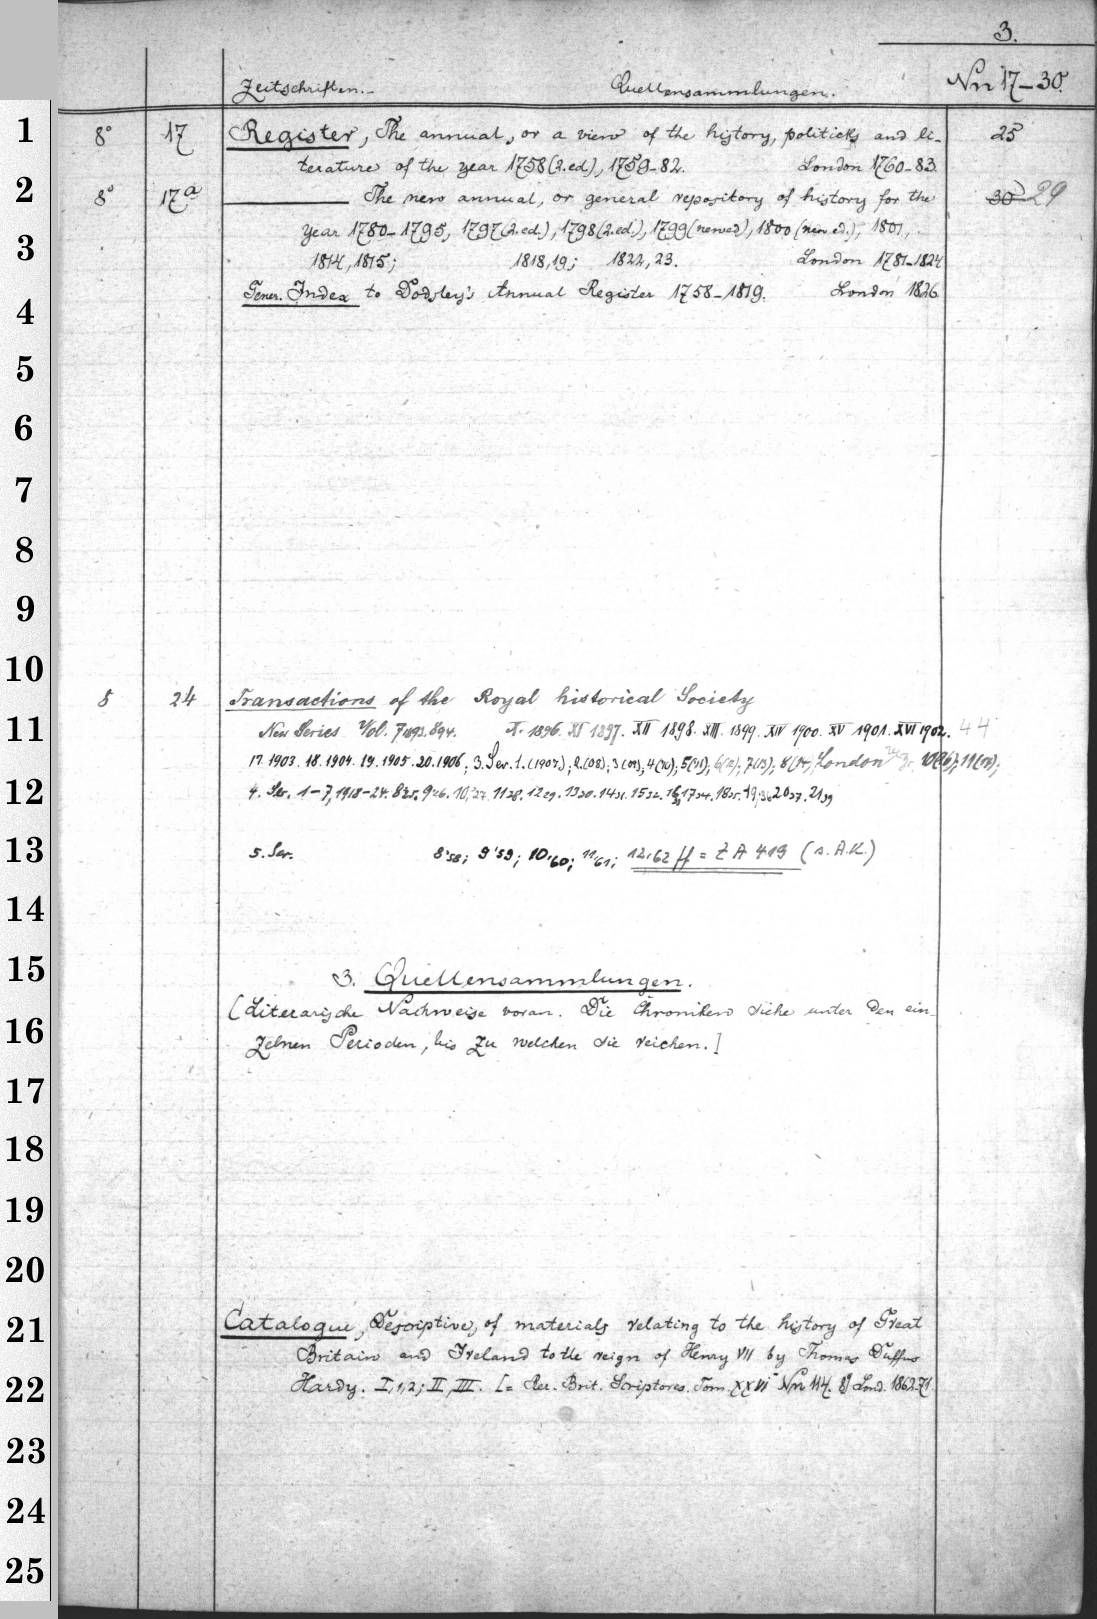 3.
Zeitschriften.- Quellensammlungen. Nn 17-30.
1 8° 17 Register, The annual, or a view of the history, politicks and li- 25
terature of the year 1758 (2.ed), 1759-82. London 1760-83.
2 8° 17a ——— The new annual, or general repository of history for the 30 29
3 year 1780-1795, 1797 (2.ed.), 1798 (2.ed.), 1799 (new ed), 1800 (new ed.), 1801,
1814, 1815; 1818,19; 1822,23. London 1781-1824
4 Gener. Index to Dodsley's Annual Register 1758-1819. London 1826.
5
6
7
8
9
10
8 24 Transactions of the Royal historical Society
11 New Series Vol. 7 1893. 894. X. 1896. XI 1897. XII 1898. XIII. 1899. XIV 1900. XV 1901. XVI 1902. 44
17. 1903. 18. 1904. 19. 1905. 20. 1906; 3. Ser. 1. (1907); 2. (08); 3 (09); 4 (10); 5 (11); 6 (12); 7 (13); 8 (14); London 10 (16); 11 (17);
12 4. Ser. 1-7, 1918-24. 8'25. 9'26. 10,'27. 11 28. 12 29. 13 30. 14 31. 15 32. 16 33 17 34. 18 35. 19; 36 20 37. 21 39
13 5. Ser. 8'58; 9'59; 10,'60; 11'61; 12,'62 ff = Z A 419 (s. A.K.)
14
15 3. Quellensammlungen.
[Literarische Nachweise voran. Die Chroniken siehe unter den ein-
16 zelnen Perioden, bis zu welchen sie reichen.]
17
18
19
20
21 Catalogue, Descriptive, of materials relating to the history of Great
Britain and Ireland to the reign of Henry VII by Thomas Duffus
22 Hardy. I,1,2; II, III. [= Rer. Brit. Scriptores. Tom. XXVI Nn 114. 8] Lond. 1862-71.
23
24
25